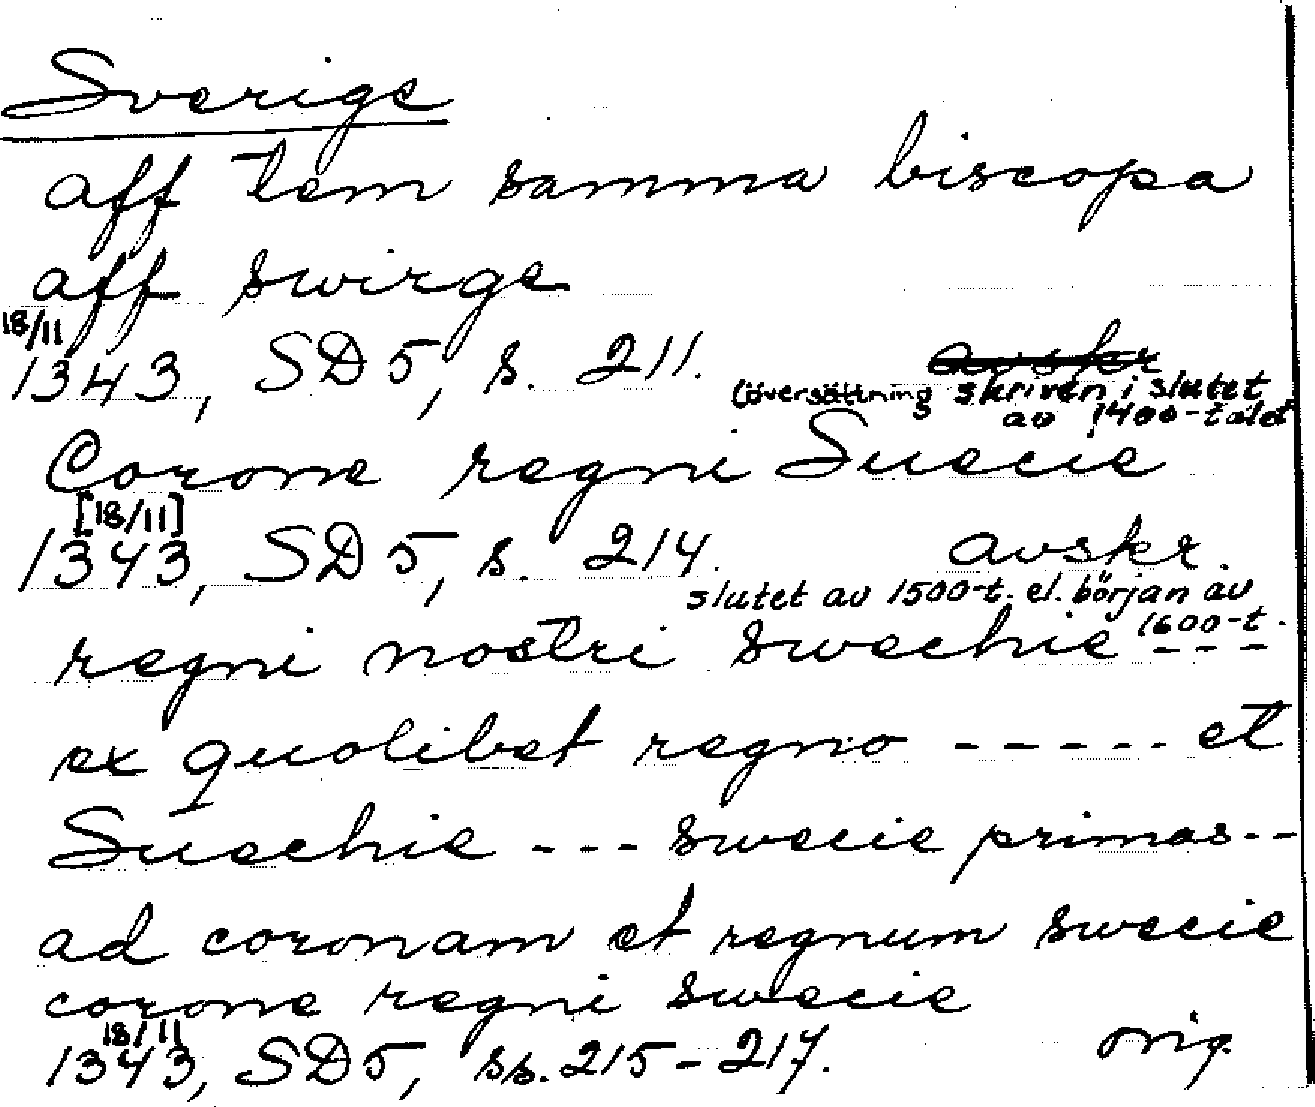 Sverige
aff tem samma biscopa
aff swirge
18/11
1343, SD5, s. 211. avskr
(översättning skriven i slutet
av 1400-talet
Corone regni Suecie
[18/11]
1343, SD5, s. 214. avskr.
slutet av 1500-t. el. början av
1600-t.
regni nostri swechie ---
ex quolibet regno ----- et
Suechie --- swecie primas--
ad coronam et regnum swecie
corone regni swecie
18/11
1343, SD5, ss. 215-217. orig.